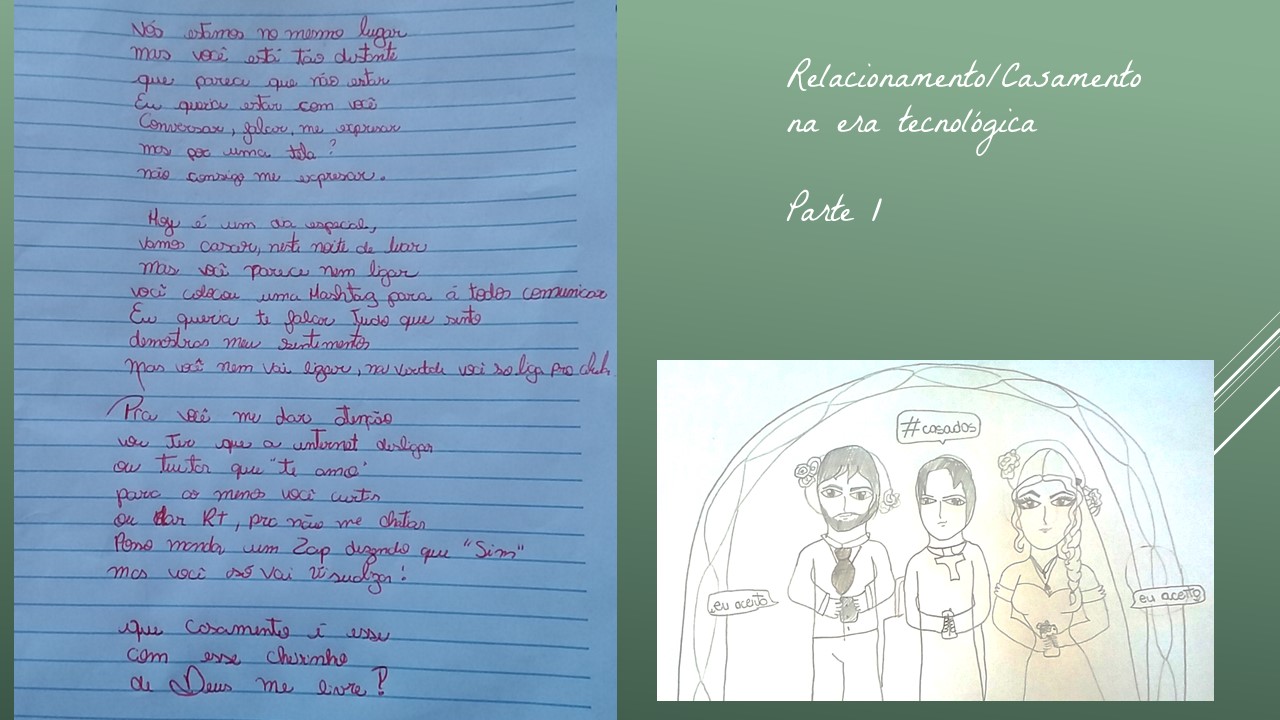 Nós estamos no mesmo lugar
mas você está tão distante
que parece que não estar
Eu queria estar com você
Conversar, falar, me expresar
mas por uma tela?
não consigo me expresar.
Hoje é um dia especial,
vamos casar, nesta noite de luar
mas você parece nem ligar
você colocou uma Hashtag para á todos comunicar
Eu queria te falar Tudo que sinto
demostrar meu sentimento
mas você nem vai ligar, na verdade você só liga pro
Pra você me dar atenção
vou Ter que a internet desligar
ou tuitar que "te amo"
para ao menos você curtir
ou dar RT, pra não me chatear
Posso mandar um Zap dizendo que "Sim"
mas você só vai Visualizar!
que casamento é esse
com esse cheirinho
de Deus me livre?
Relacionamento/Casamento
na era tecnológica
Parte 1
#casados
eu aceito
eu aceito